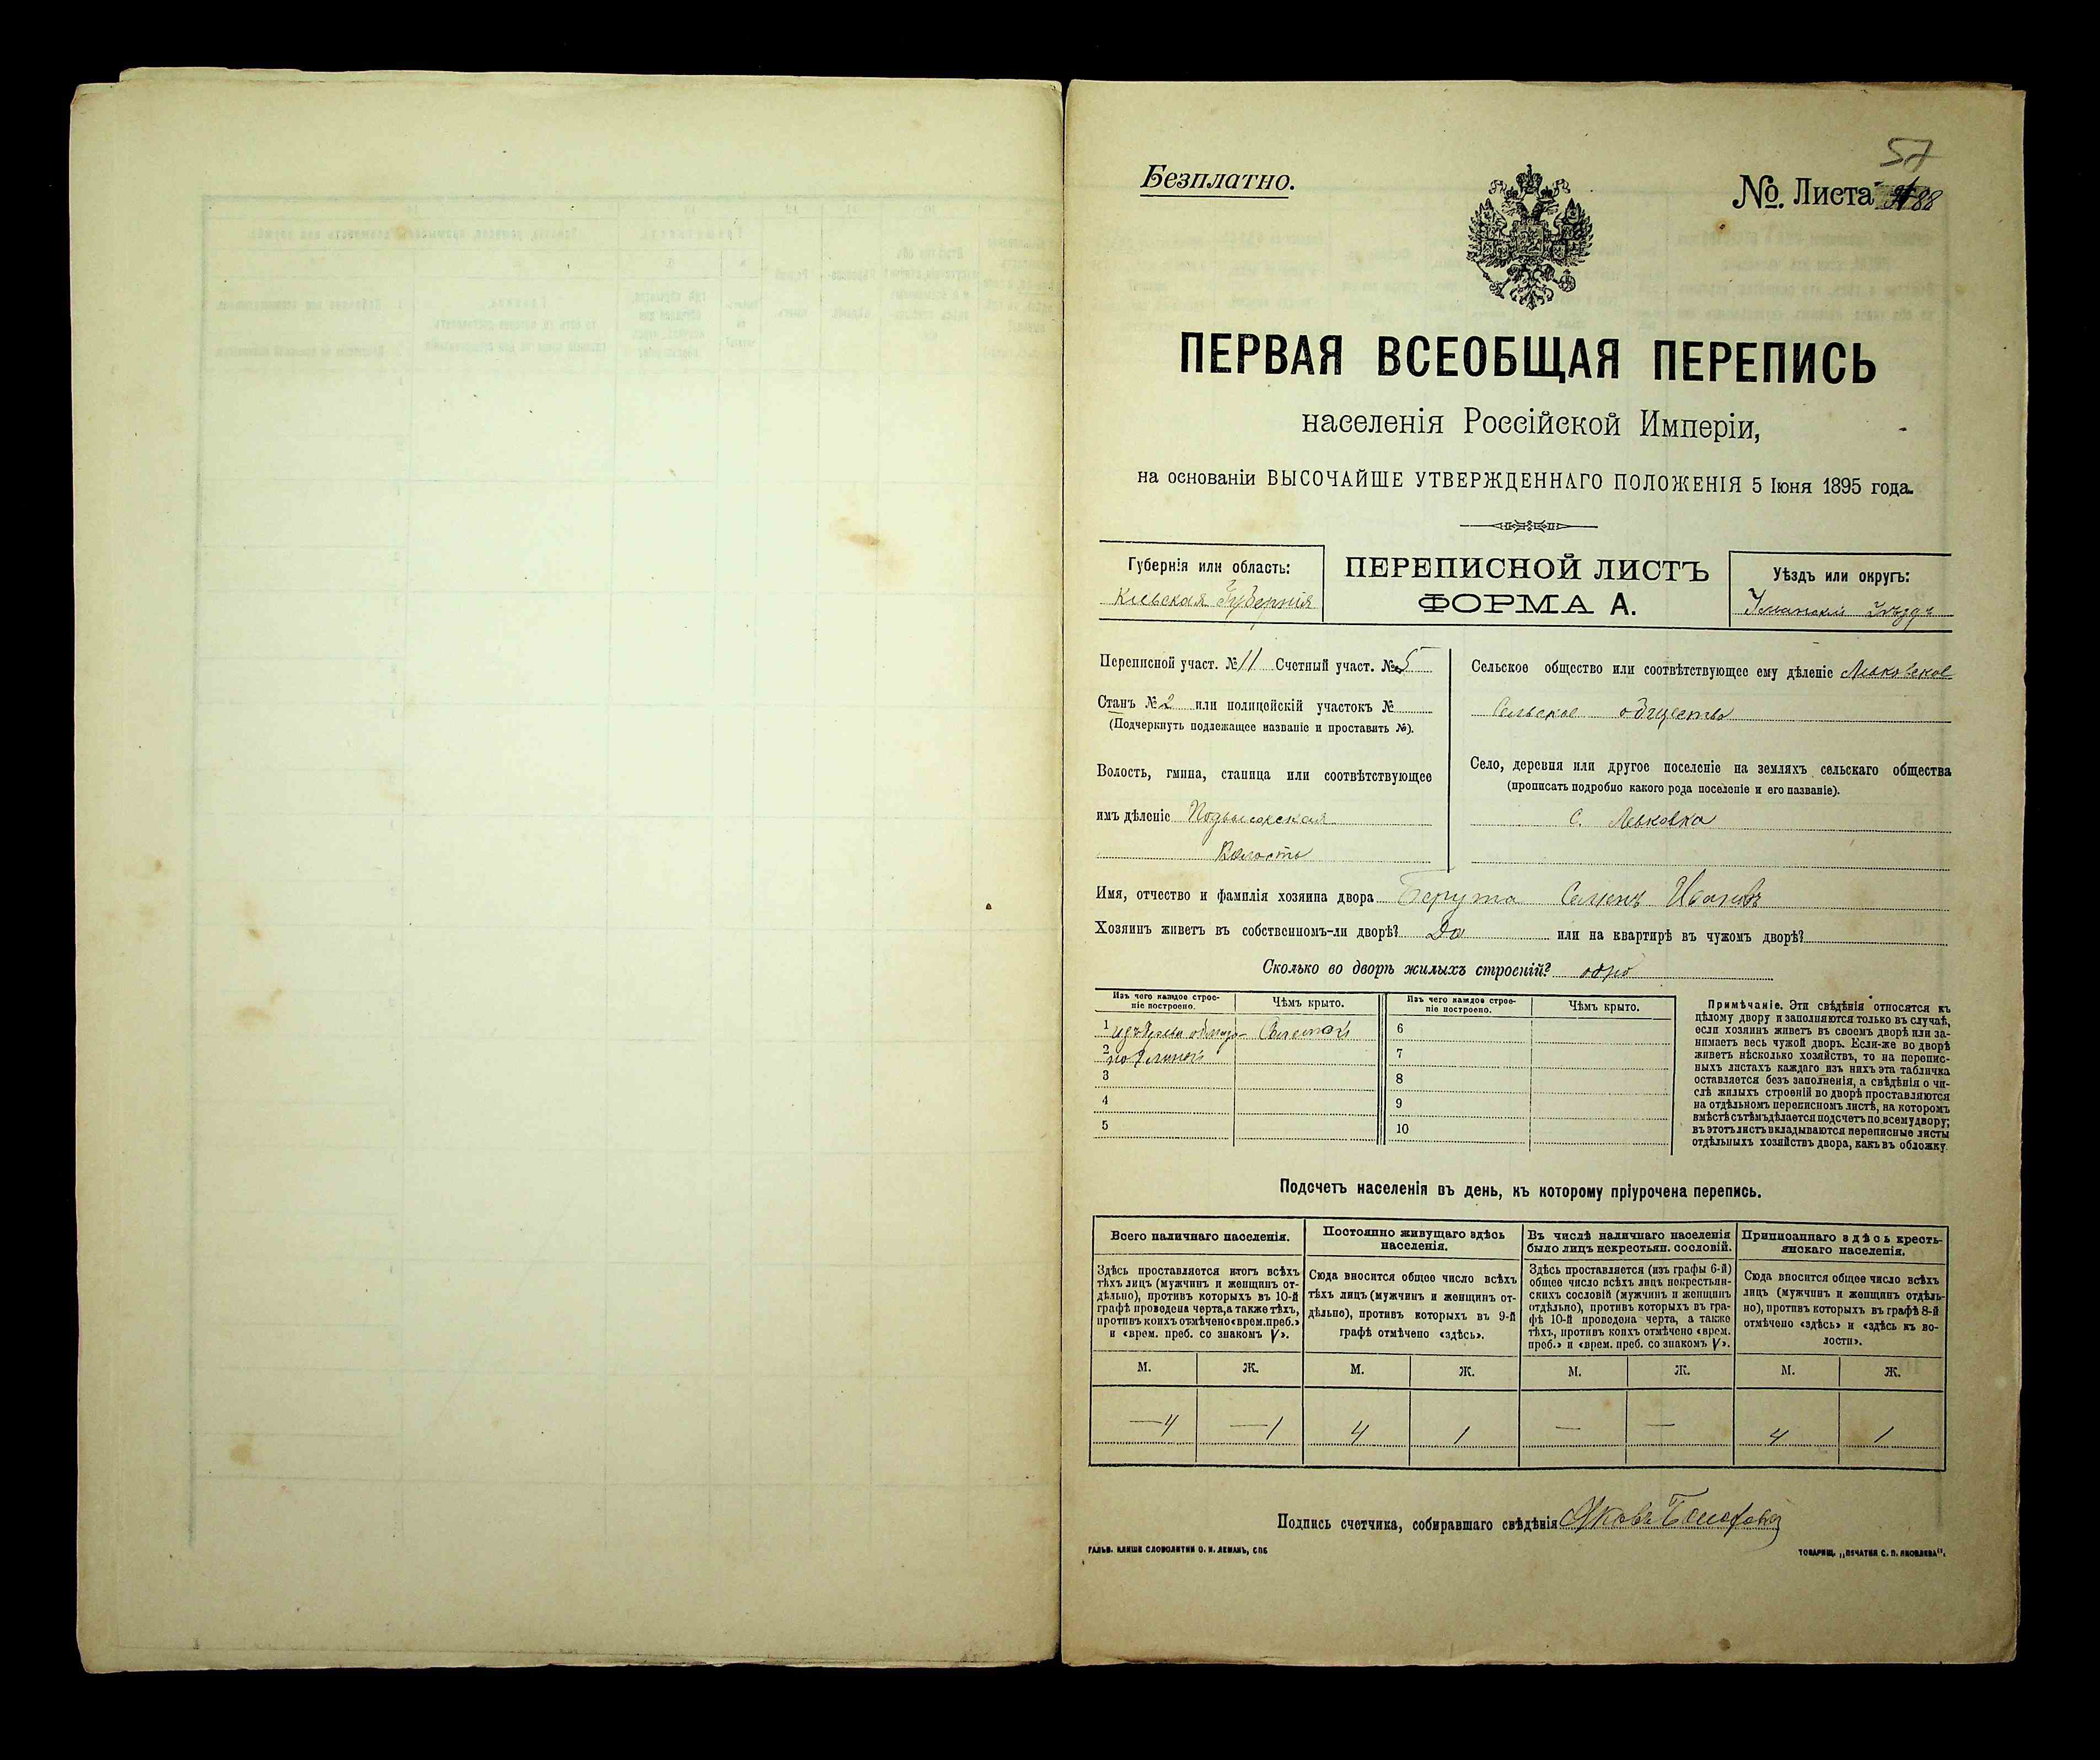 57
Безплатно.
№ Листа 88
ПЕРВАЯ ВСЕОБЩАЯ ПЕРЕПИСЬ
населенія Россійской Имперіи,
на основаніи ВЫСОЧАЙШЕ УТВЕРЖДЕННАГО ПОЛОЖЕНІЯ 5 Іюня 1895 года.
Губернія или область:
Кіевская Губернія
ПЕРЕПИСНОЙ ЛИСТЪ
ФОРМА А.
Уѣздъ или округъ:
Уманскій Уѣздъ
Переписной участ. № 11 Счетный участ. № 5
Станъ № 2 или полицейскій участокъ №
(Подчеркнуть подлежащее названіе и проставить №).
Волость, гмина, станица или соотвѣтствующее
имъ дѣленіе Подвысокская
Волость
Сельское общество или соотвѣтствующее ему дѣленіе Левковское
Сельское общество
Село, деревня или другое поселеніе на земляхъ сельскаго общества
(прописать подробно какого рода поселеніе и его названіе).
С. Левковка
Имя, отчество и фамилія хозяина двора Берута Семенъ Ивановъ
Хозяинъ живетъ въ собственномъ-ли дворѣ? Да или на квартирѣ въ чужомъ дворѣ?
Сколько во дворѣ жилыхъ строеній? одно
Изъ чего каждое строе-
ніе построено.
Чѣмъ крыто.
1 изъ дерева обмаза- Соломой
2 но глиной
3
4
5
Изъ чего каждое строе-
ніе построено.
Чѣмъ крыто.
6
7
8
9
10
Примѣчаніе. Эти свѣдѣнія относятся къ
цѣлому двору и заполняются только въ случаѣ,
если хозяинъ живетъ въ своемъ дворѣ или за-
нимаетъ весь чужой дворъ. Если-же во дворѣ
живетъ нѣсколько хозяйствъ, то на перепис-
ныхъ листахъ каждаго изъ нихъ эта табличка
оставляется безъ заполненія, а свѣдѣнія о чи-
слѣ жилыхъ строеній во дворѣ проставляются
на отдѣльномъ переписномъ листѣ, на которомъ
вмѣстѣ съ тѣмъ дѣлается подсчетъ по всему двору;
въ этотъ листъ вкладываются переписные листы
отдѣльныхъ хозяйствъ двора, какъ въ обложку.
Подсчетъ населенія въ день, къ которому пріурочена перепись.
Всего наличнаго населенія.
Здѣсь проставляется итогъ всѣхъ
тѣхъ лицъ (мужчинъ и женщинъ от-
дѣльно), противъ которыхъ въ 10-й
графѣ проведена черта, а также тѣхъ,
противъ коихъ отмѣчено «врем. преб.»
и «врем. преб. со знакомъ V».
М. Ж.
—4 —1
Постоянно живущаго здѣсь
населенія.
Сюда вносится общее число всѣхъ
тѣхъ лицъ (мужчинъ и женщинъ от-
дѣльно), противъ которыхъ въ 9-й
графѣ отмѣчено «здѣсь».
М. Ж.
4 1
Въ числѣ наличнаго населенія
было лицъ некрестьян. сословій.
Здѣсь проставляется (изъ графы 6-й)
общее число всѣхъ лицъ некрестьян-
скихъ сословій (мужчинъ и женщинъ
отдѣльно), противъ которыхъ въ гра-
фѣ 10-й проведена черта, а также
тѣхъ, противъ коихъ отмѣчено «врем.
преб.» и «врем. преб. со знакомъ V».
М. Ж.
— —
Приписаннаго здѣсь кресть-
янскаго населенія.
Сюда вносится общее число всѣхъ
лицъ (мужчинъ и женщинъ отдѣль-
но), противъ которыхъ въ графѣ 8-й
отмѣчено «здѣсь» и «здѣсь къ во-
лости».
М. Ж.
4 1
Подпись счетчика, собиравшаго свѣдѣнія Яковъ
ГАЛЬВ. КЛИШЕ СЛОВОЛИТНИ О. И. ЛЕМАНЪ, СПБ
ТОВАРИЩ. „ПЕЧАТНЯ С. П. ЯКОВЛЕВА“.